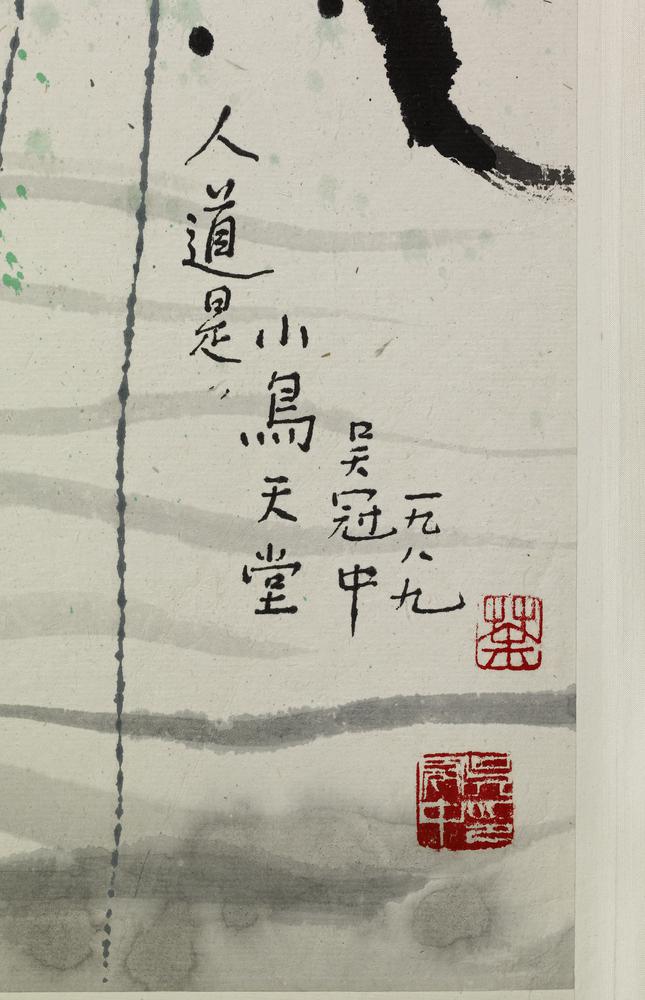 人道是
小鳥天堂
吴冠中
一九八九
荼
吴冠中印